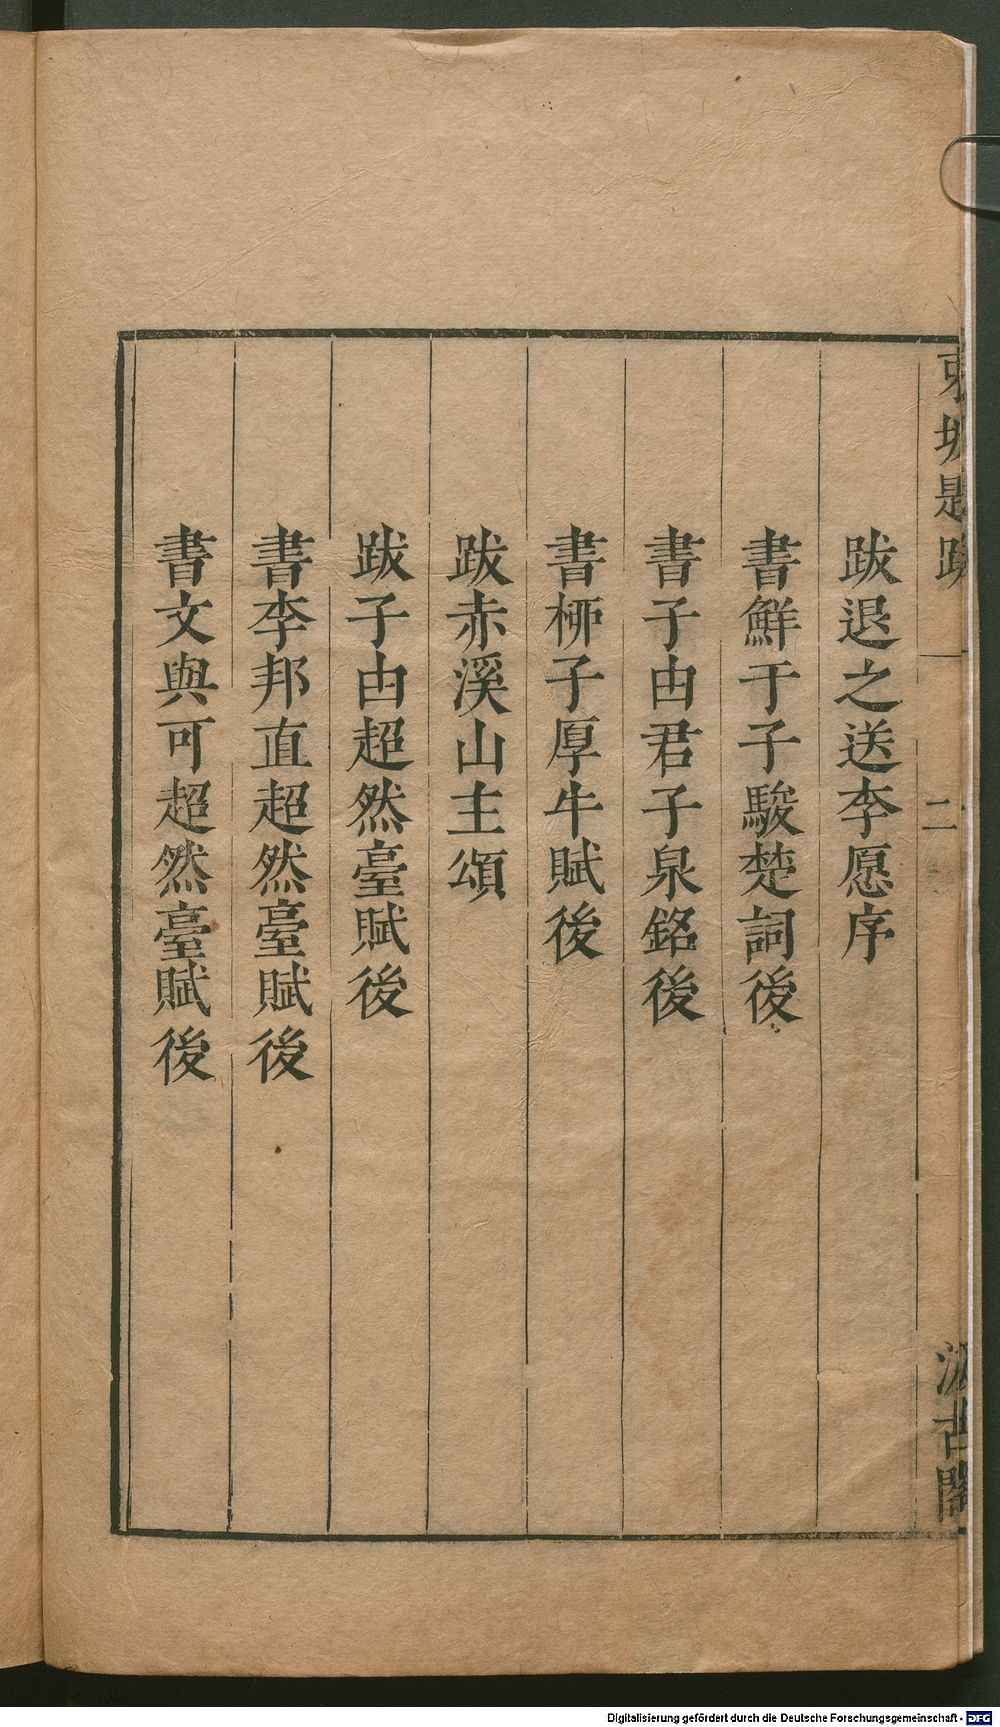 東坡題跋
二
汲古閣
跋退之送李愿序
書鮮于子駿楚詞後
書子由君子泉銘後
書柳子厚牛賦後
跋赤溪山主頌
跋子由超然臺賦後
書李邦直超然臺賦後
書文與可超然臺賦後
Digitalisierung gefördert durch die Deutsche Forschungsgemeinschaft - DFG